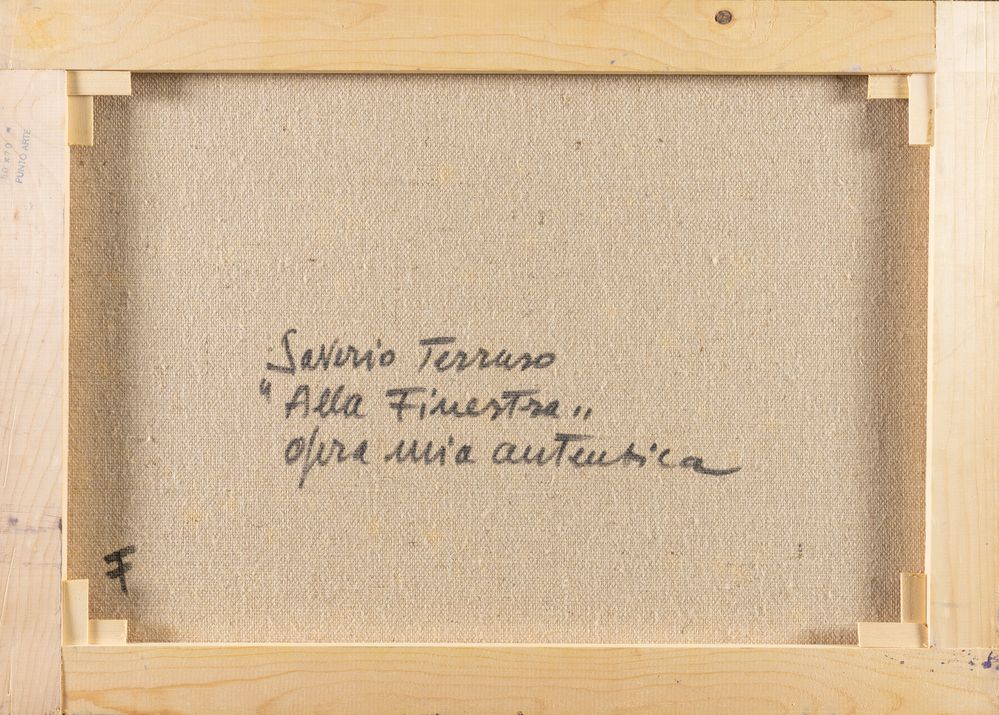 Saverio Terruso
"Alla Finestra"
opera mia autentica
F
PUNTO ARTE